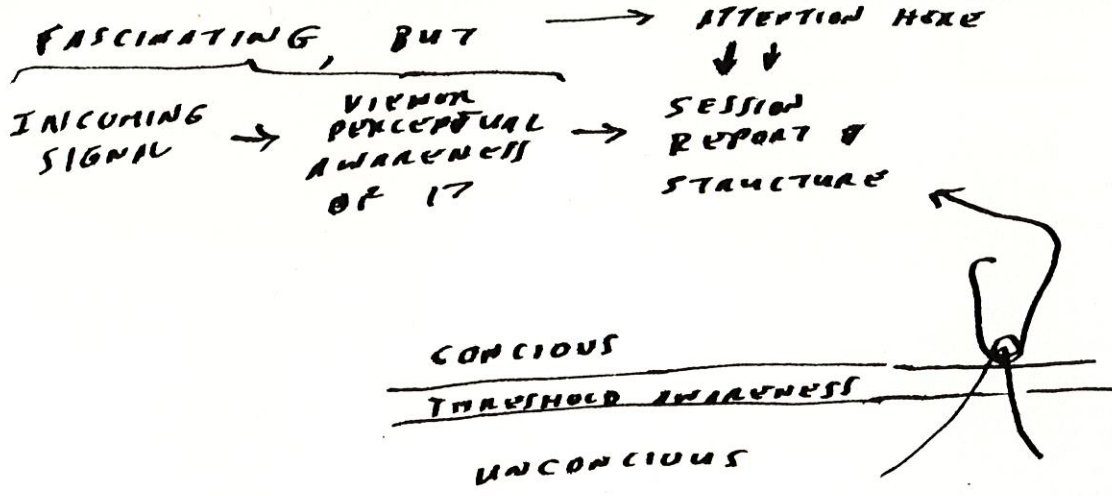 FASCINATING, BUT → ATTENTION HERE
INCOMING SIGNAL → VIEWER PERCEPTUAL AWARENESS OF IT → SESSION REPORT & STRUCTURE
CONCIOUS
THRESHOLD AWARENESS
UNCONCIOUS